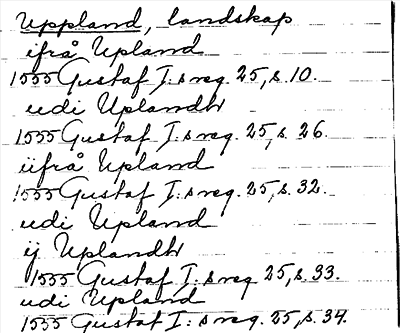 Uppland, landskap
ifrå Upland
1555 Gustaf I:s reg. 25, s. 10.
udi Uplandh
1555 Gustaf I:s reg. 25, s. 26.
iifrå Upland
1555 Gustaf I:s reg. 25, s. 32.
udi Upland
ij Uplandh
1555 Gustaf I:s reg. 25, s. 33.
udi Upland
1555 Gustaf I:s reg. 25, s. 34.